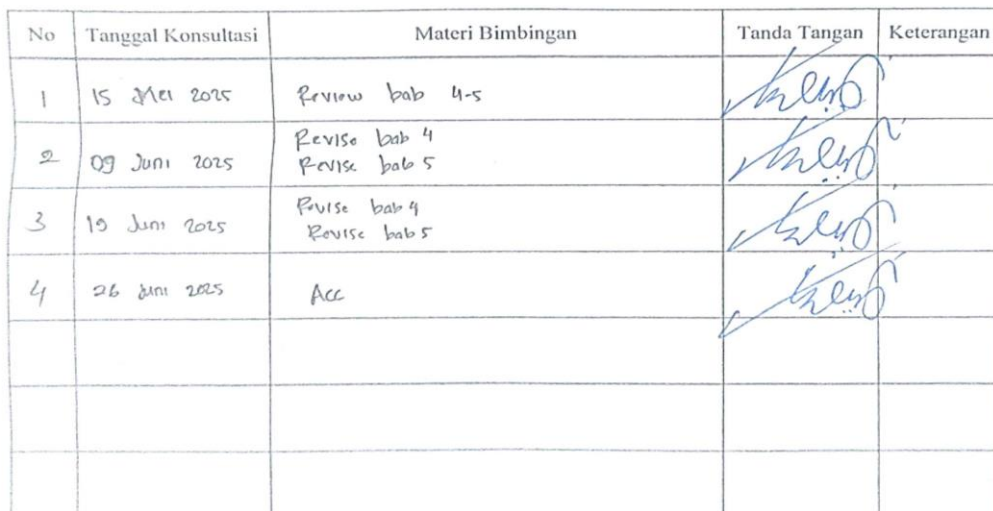 No Tanggal Konsultasi Materi Bimbingan Tanda Tangan Keterangan
1 15 Mei 2025 Review bab 4-5
2 09 Juni 2025 Revise bab 4
Revise bab 5
3 19 Juni 2025 Revise bab 4
Revise bab 5
4 26 Juni 2025 Acc